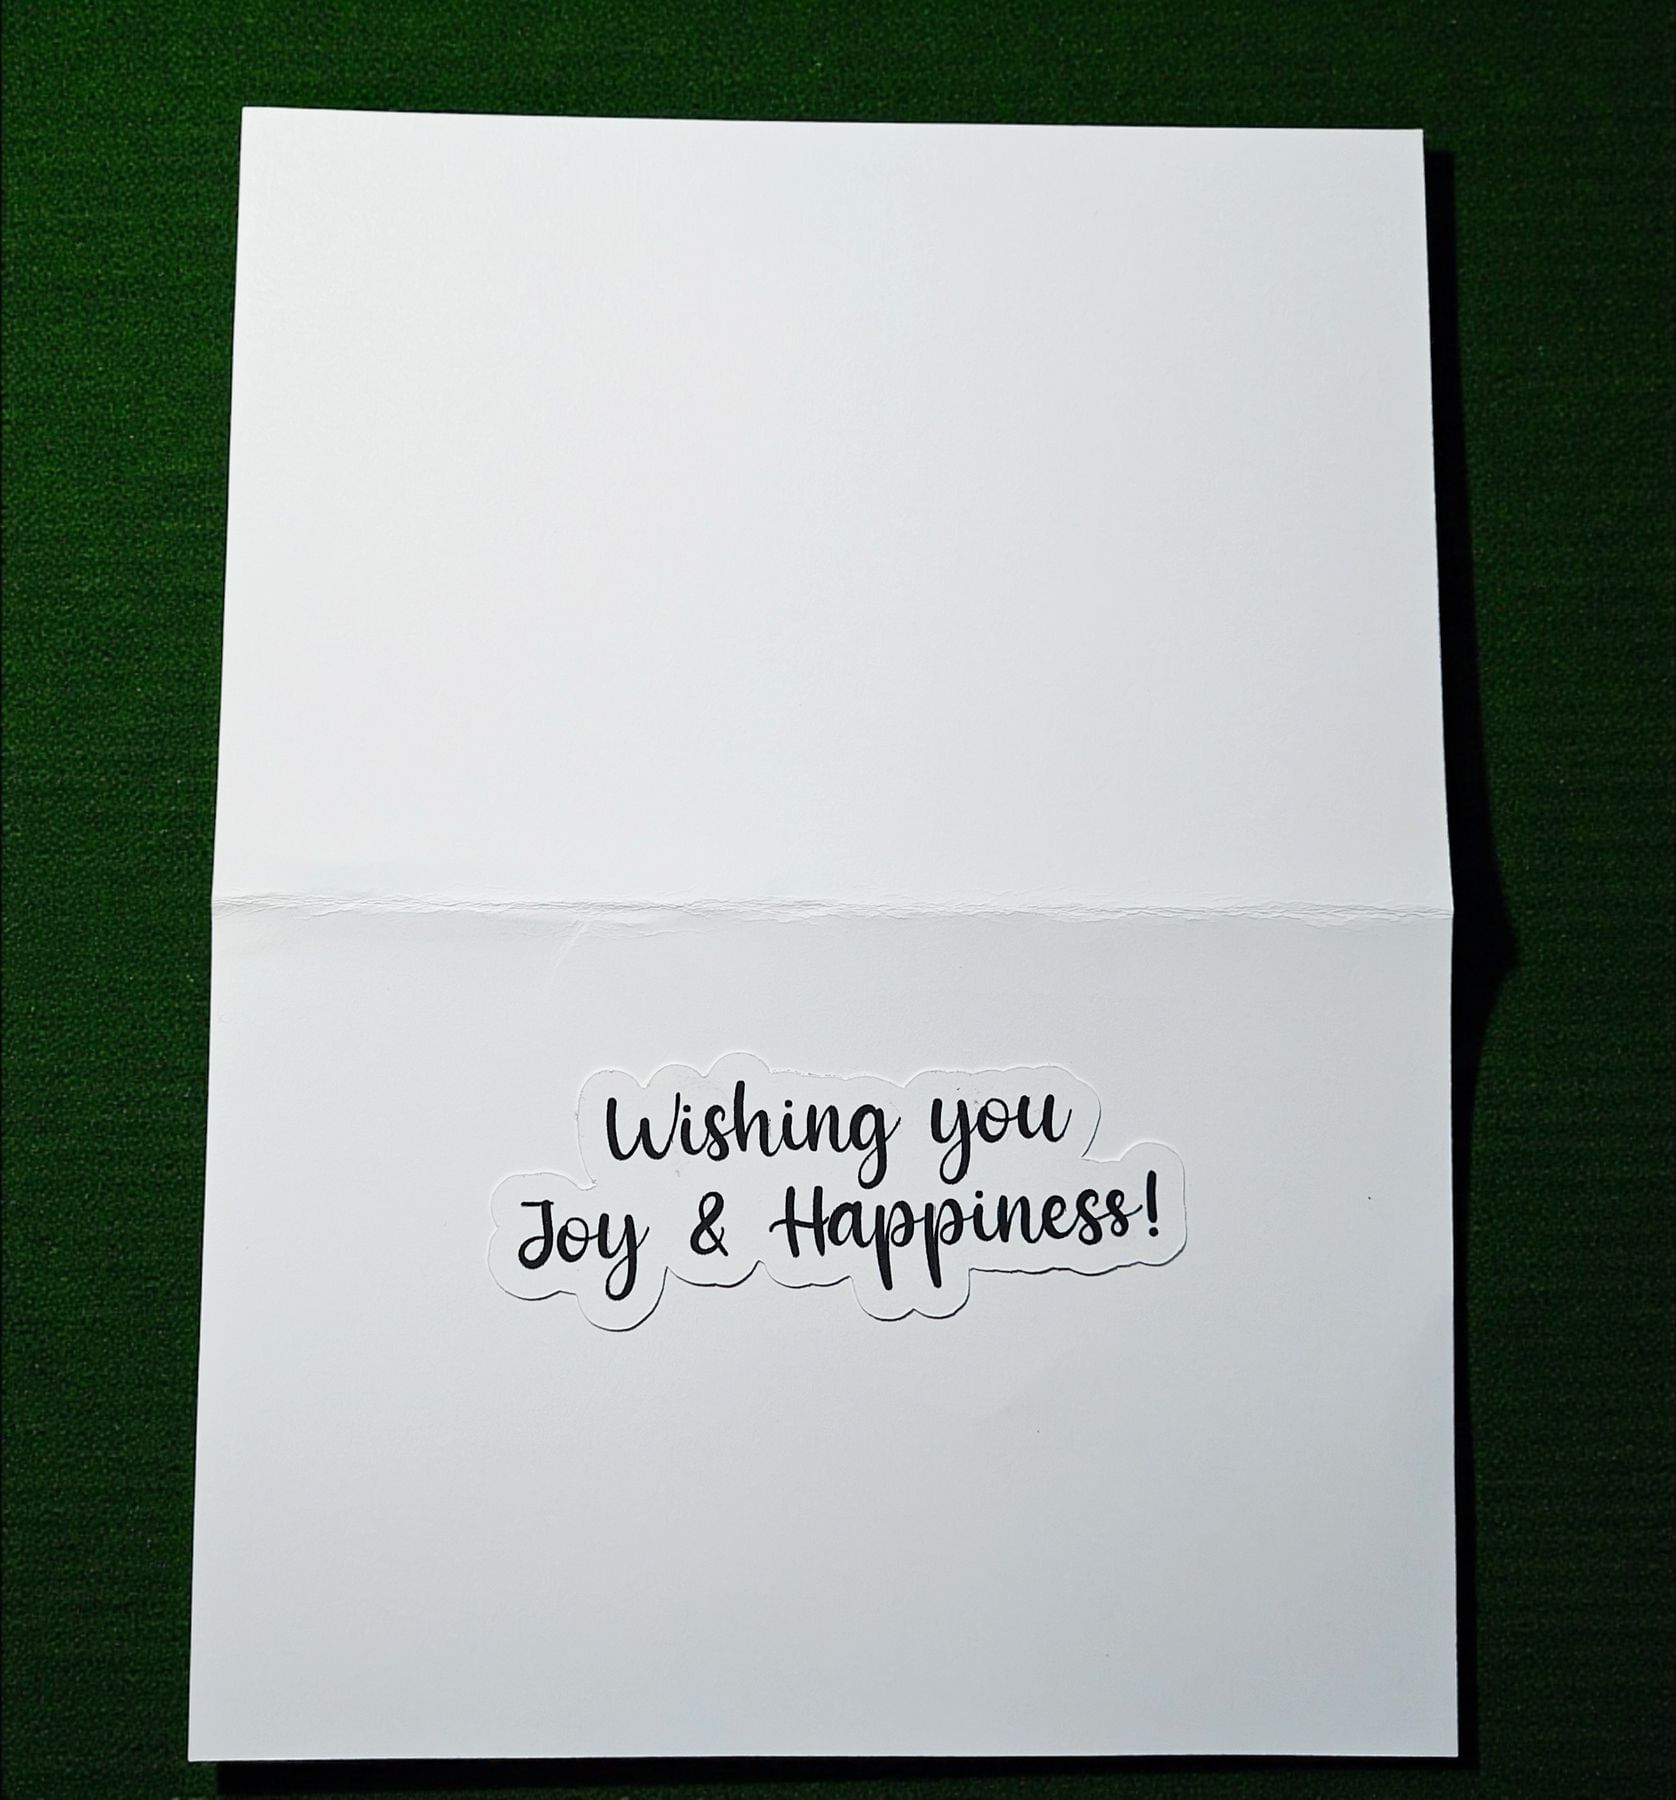 Wishing you
Joy & Happiness!